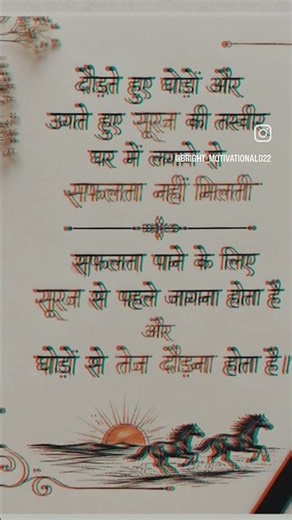 दौड़ते हुए घोड़ों और
उगते हुए सूरज की तस्वीर
@BRIGHT_MOTIVATIONAL022
घर में लगाने से
सफलता नहीं मिलती
सफलता पाने के लिए
सूरज से पहले जागना होता है
और
घोड़ों से तेज दौड़ना होता है।